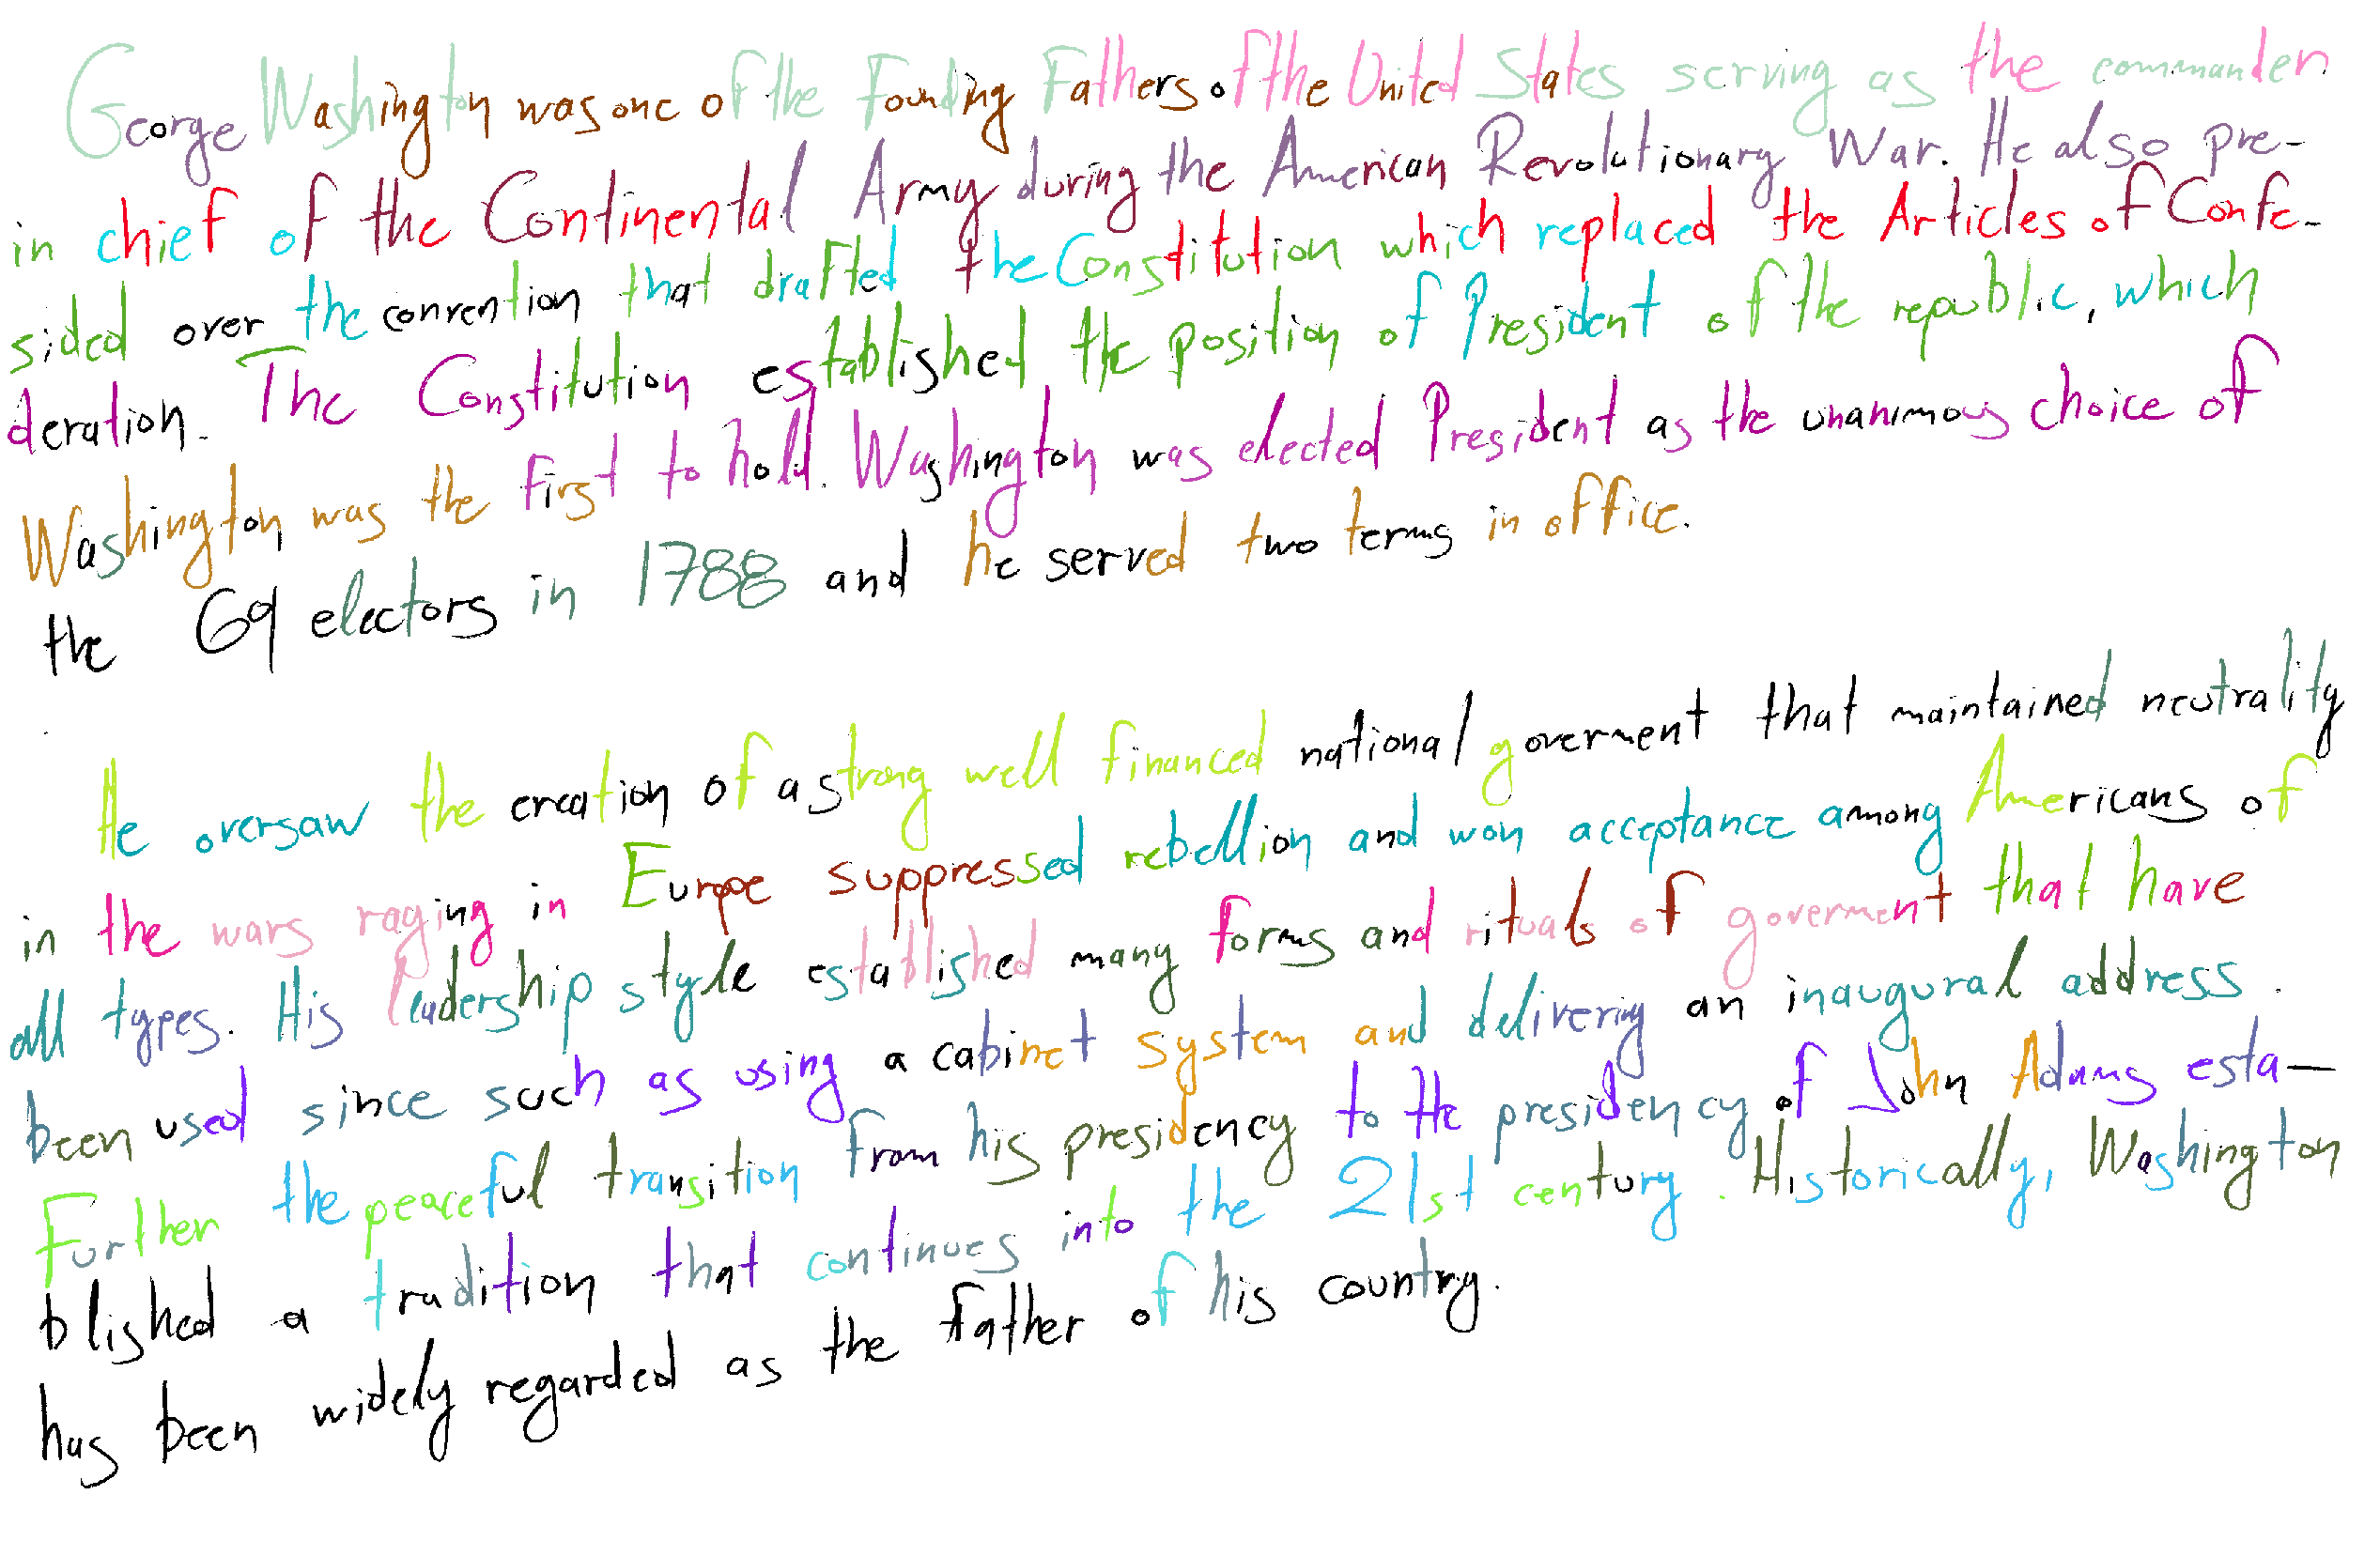 George Washington was one of the Founding Fathers of the United States serving as the commander
in chief of the Continental Army during the American Revolutionary War. He also pre-
sided over the convention that drafted the Constitution which replaced the Articles of Confe-
deration. The Constitution established the position of President of the republic, which
Washington was the first to hold. Washington was elected President as the unanimous choice of
the 69 electors in 1788 and he served two terms in office.
He oversaw the creation of a strong well financed national goverment that maintained neutrality
in the wars raging in Europe suppressed rebellion and won acceptance among Americans of
all types. His leadership style established many forms and rituals of goverment that have
been used since such as using a cabinet system and delivering an inaugural address.
Further the peaceful transition from his presidency to the presidency of John Adams esta-
blished a tradition that continues into the 21st century. Historically, Washington
has been widely regarded as the father of his country.